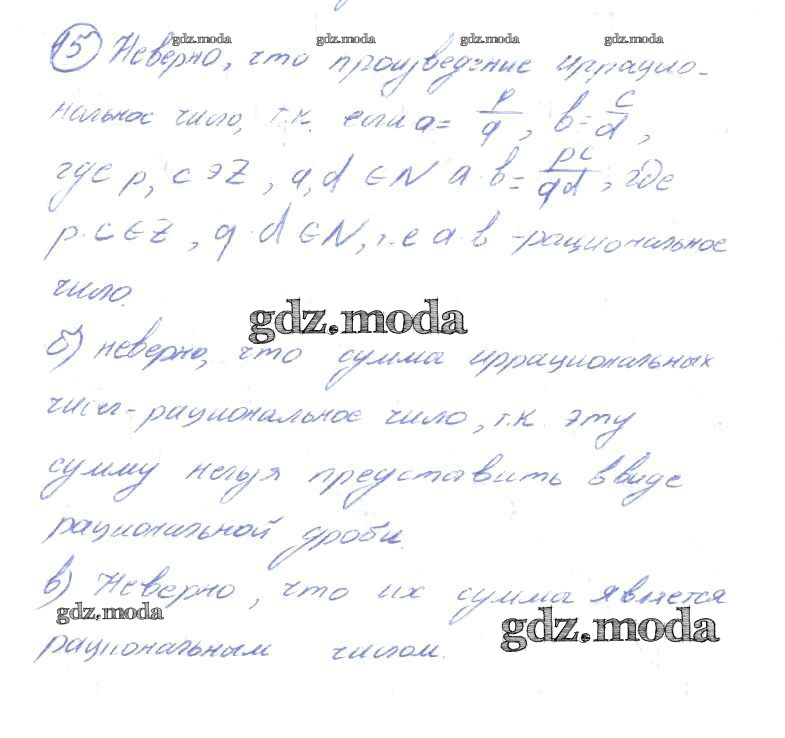 gdz.moda gdz.moda gdz.moda gdz.moda
15) Неверно, что произведение иррацио-
нальное число, т.к. если a = p/q, b = c/d,
где p, c ∈ Z, q, d ∈ N a·b = pc/qd, где
p·c ∈ Z, q·d ∈ N, т.е a·b - рациональное
число.
gdz.moda
б) неверно, что сумма иррациональных
чисел - рациональное число, т.к. эту
сумму нельзя представить в виде
рациональной дроби.
в) Неверно, что их сумма является
gdz.moda gdz.moda
рациональным числом.